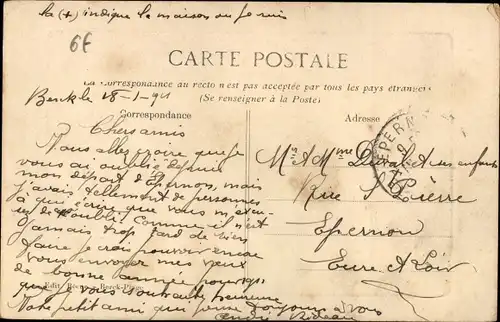 la (+) indique la maison ou je suis
6f
CARTE POSTALE
La Correspondance au recto n'est pas acceptée par tous les pays étrangers
(Se renseigner à la Poste)
Berck le 28-1-
Correspondance
Adresse
Chers amis
Vous allez croire que je
vous ai oublié depuis
mon départ d'Epernon, mais
j'avais tellement de personnes
à qui écrire que vous
Comme il n'est
jamais trop tard de bien
faire je crois pouvoir encore
vous envoyer mes vœux
de bonne année pour vous
que je vous souhaite heureuse
Votre petit ami que pense toujours à vous
André
Edit. Berck-Plage
EPERNON
Mr & Mme Duval & ses enfants
Rue St Pierre
Epernon
Eure & Loir